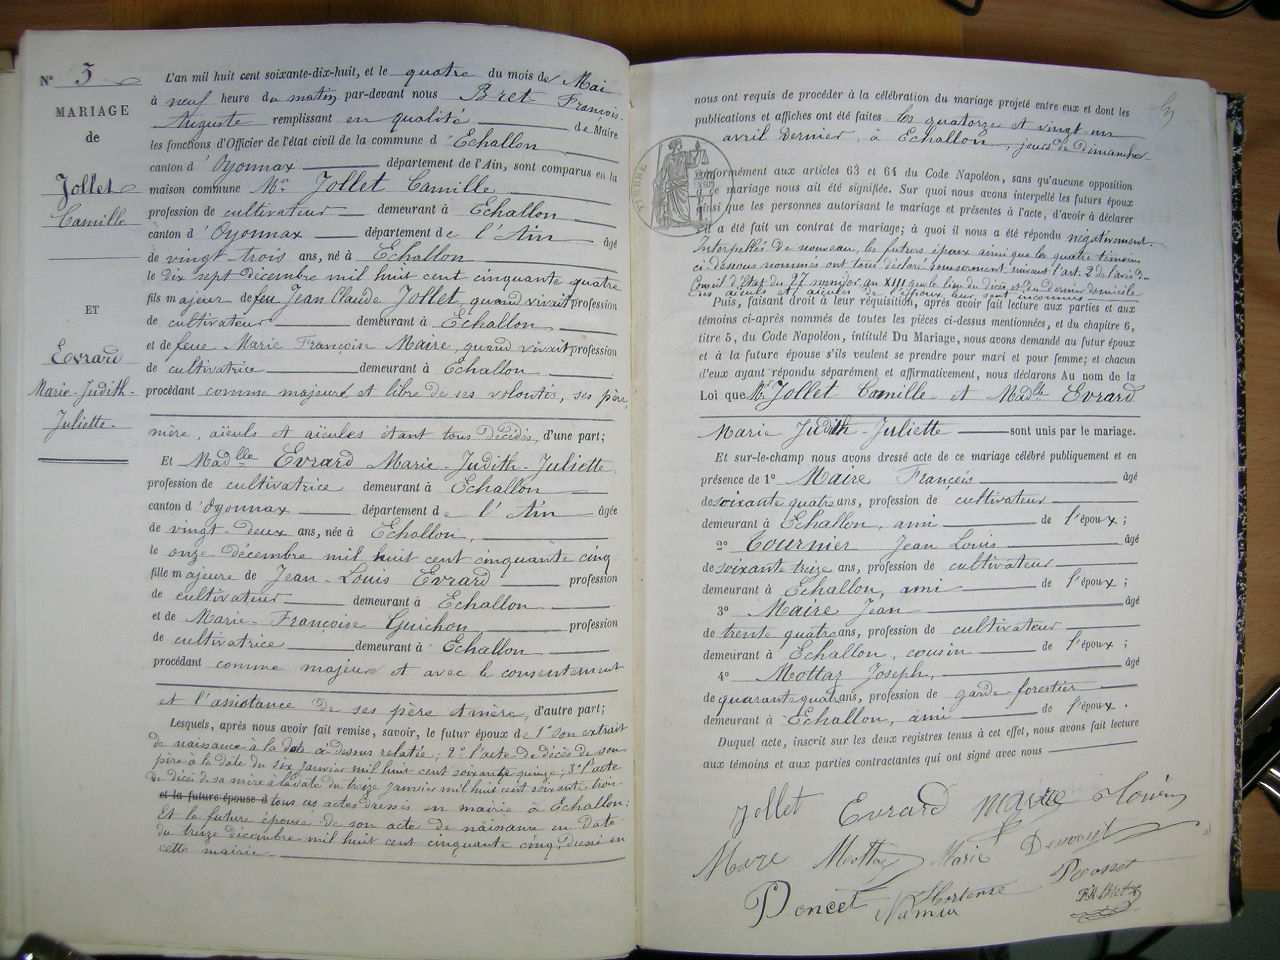 N° 3
MARIAGE
de
Jollet
Camille
ET
Evrard
Marie-Judith-
Juliette
L'an mil huit cent soixante-dix-huit, et le quatre du mois de Mai
à neuf heure du matin par-devant nous Bret François-
Auguste remplissant en qualité de Maire
les fonctions d'Officier de l'état civil de la commune d'Echallon
canton d'Oyonnax département de l'Ain, sont comparus en la
maison commune Mr Jollet Camille
profession de cultivateur demeurant à Echallon
canton d'Oyonnax département de l'Ain âgé
de vingt-trois ans, né à Echallon
le dix sept décembre mil huit cent cinquante quatre
fils majeur de feu Jean Claude Jollet, quand vivait profession
de cultivateur demeurant à Echallon
et de feue Marie Françoise Maire, quand vivait profession
de cultivatrice demeurant à Echallon
procédant comme majeur et libre de ses volontés, ses père,
mère, aïeuls et aïeules étant tous décédés, d'une part;
Et Madlle Evrard Marie-Judith-Juliette
profession de cultivatrice demeurant à Echallon
canton d'Oyonnax département de l'Ain âgée
de vingt-deux ans, née à Echallon,
le onze décembre mil huit cent cinquante cinq
fille majeure de Jean-Louis Evrard profession
de cultivateur demeurant à Echallon
et de Marie-Françoise Guichon profession
de cultivatrice demeurant à Echallon
procédant comme majeur et avec le consentement
et l'assistance de ses père & mère, d'autre part;
Lesquels, après nous avoir fait remise, savoir, le futur époux de 1° son extrait
de naissance à la date ci-dessus relatée; 2° l'acte de décès de son
père à la date du six janvier mil huit cent soixante quinze; 3° l'acte
de décès de sa mère à la date du treize janvier mil huit cent soixante trois
et la future épouse d tous ces actes dressés en mairie à Echallon;
Et la future épouse de son acte de naissance en date
du treize décembre mil huit cent cinquante cinq, dressé en
cette mairie.
nous ont requis de procéder à la célébration du mariage projeté entre eux et dont les
publications et affiches ont été faites les quatorze et vingt un
avril dernier, à Echallon, jours de Dimanche
TIMBRE
Conformément aux articles 63 et 64 du Code Napoléon, sans qu'aucune opposition
à ce mariage nous ait été signifiée. Sur quoi nous avons interpellé les futurs époux
ainsi que les personnes autorisant le mariage et présentes à l'acte, d'avoir à déclarer
s'il a été fait un contrat de mariage; à quoi il nous a été répondu négativement.
Interpellés de nouveau, les futurs époux ainsi que les quatre témoins
ci-dessous nommés ont tous déclaré sous serment suivant l'art. 2 de l'avis du
Conseil d'Etat du 27 messidor an XIII que le lieu du décès et du dernier domicile
des aïeuls et aïeules de l'époux leur sont inconnus
Puis, faisant droit à leur réquisition, après avoir fait lecture aux parties et aux
témoins ci-après nommés de toutes les pièces ci-dessus mentionnées, et du chapitre 6,
titre 5, du Code Napoléon, intitulé Du Mariage, nous avons demandé au futur époux
et à la future épouse s'ils veulent se prendre pour mari et pour femme; et chacun
d'eux ayant répondu séparément et affirmativement, nous déclarons Au nom de la
Loi que Mr Jollet Camille et Madlle Evrard
Marie Judith-Juliette sont unis par le mariage.
Et sur-le-champ nous avons dressé acte de ce mariage célébré publiquement et en
présence de 1° Maire François âgé
de soixante quatre ans, profession de cultivateur
demeurant à Echallon, ami de l'époux;
2° Tournier Jean Louis âgé
de soixante treize ans, profession de cultivateur
demeurant à Echallon, ami de l'époux;
3° Maire Jean âgé
de trente quatre ans, profession de cultivateur
demeurant à Echallon, cousin de l'époux;
4° Mottaz Joseph, âgé
de quarante quatre ans, profession de garde forestier
demeurant à Echallon, ami de l'époux.
Duquel acte, inscrit sur les deux registres tenus à cet effet, nous avons fait lecture
aux témoins et aux parties contractantes qui ont signé avec nous
Jollet Evrard Maire
Maire Mottaz Marie
Poncet Hortense